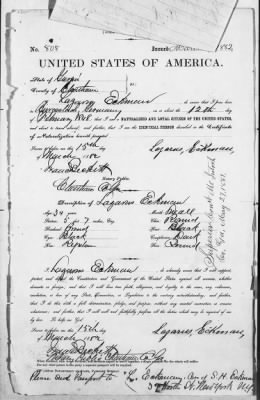 No. 808 Issued March 1882
UNITED STATES OF AMERICA.
State of Georgia
County of Chatham
I, Lazarus Eckman do swear that I was born
in Germany on or about the 12th day
of February 1848, that I am a NATURALIZED AND LOYAL CITIZEN OF THE UNITED STATES,
and about to travel abroad; and further, that I am the IDENTICAL PERSON described in the Certificate
of Naturalization herewith presented.
Sworn to before me this 15th
day of March 1882
Lazarus, Eckman,
Notary Public.
Chatham Co Ga
Description of Lazarus Eckman
Age: 34 years Mouth: Small
Stature: 5 feet 7 inches, Eng. Chin: Round
Forehead: Hair: Black
Eyes: Black Complexion: Dark
Nose: Face: Round
I, Lazarus Eckman, do solemnly swear that I will support,
protect, and defend the Constitution and Government of the United States against all enemies, whether
domestic or foreign; and that I will bear true faith, allegiance, and loyalty to the same, any ordinance,
resolution, or law of any State, Convention, or Legislature to the contrary notwithstanding; and further,
that I do this with a full determination, pledge, and purpose, without any mental reservation or evasion
whatsoever; and further, that I will well and faithfully perform all the duties which may be required of me
by law: So help me God.
Sworn to before me this 15th
day of March 1882
Lazarus, Eckman,
Notary Public Chatham Co Ga
Please send Passport to L. Eckman, Care of S. H. Eckman
North St. New York
Superior Court
Co, Ga, May 23/1871